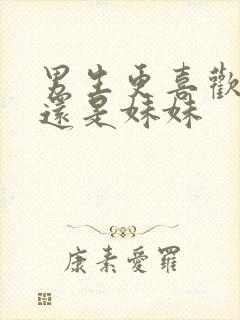 男生更喜歡
還是妹妹
康素愛羅